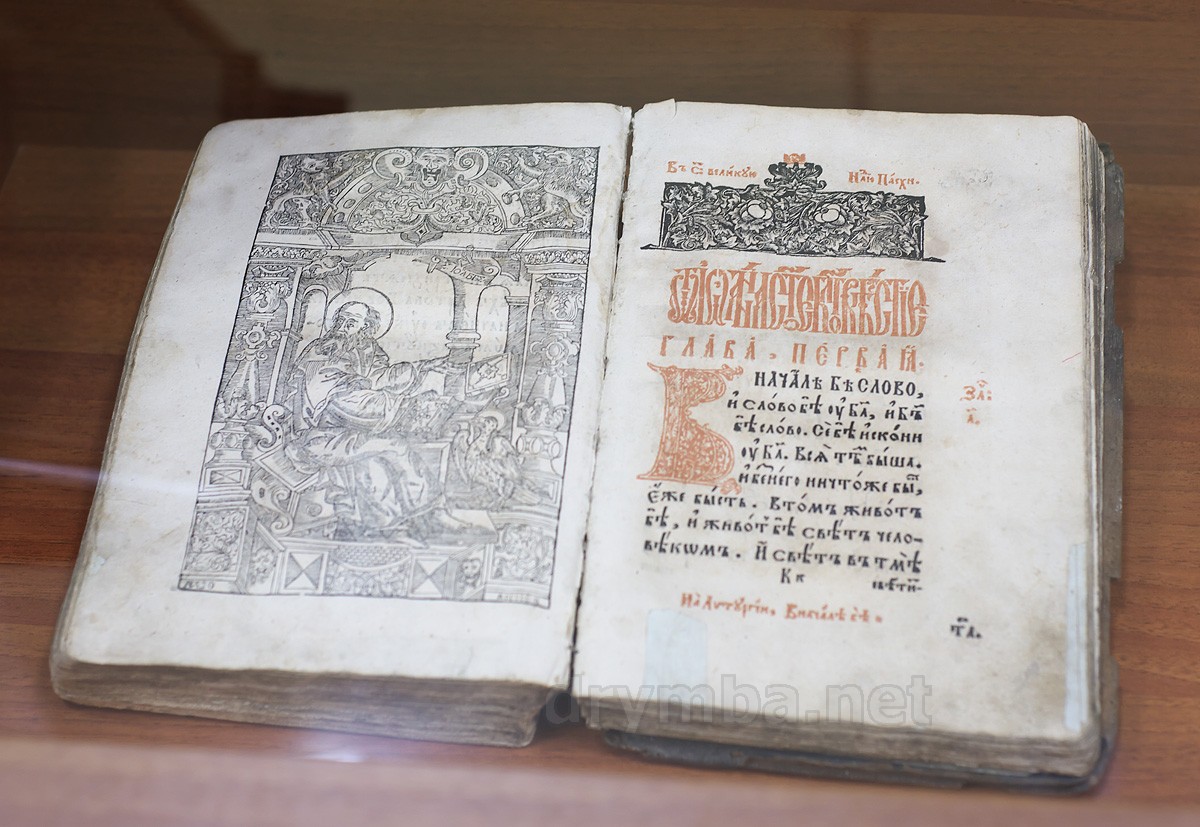 Въ с҃ великую н҃лю Пасхи.
ГЛАВА, ПЕРВАѦ.
В НАЧАЛѢ БѢ СЛОВО,
и слово бѣ оу б҃а, и б҃ъ
бѣ слово. Се́ бѣ и҆скони
оу б҃а. Всѧ тѣ́мъ быша.
и безнего ничтоже бы́,
є҆́же бысть. Втомъ живо́тъ
бѣ, и҆ живо́тъ бѣ свѣ́тъ чело-
вѣкѡмъ. И҆ свѣ́тъ въ тмѣ̀
За҃:
а҃.
Кк
свѣти-
На Литꙋргіи, Вначалѣ бѣ
т҃а.
drymba.net